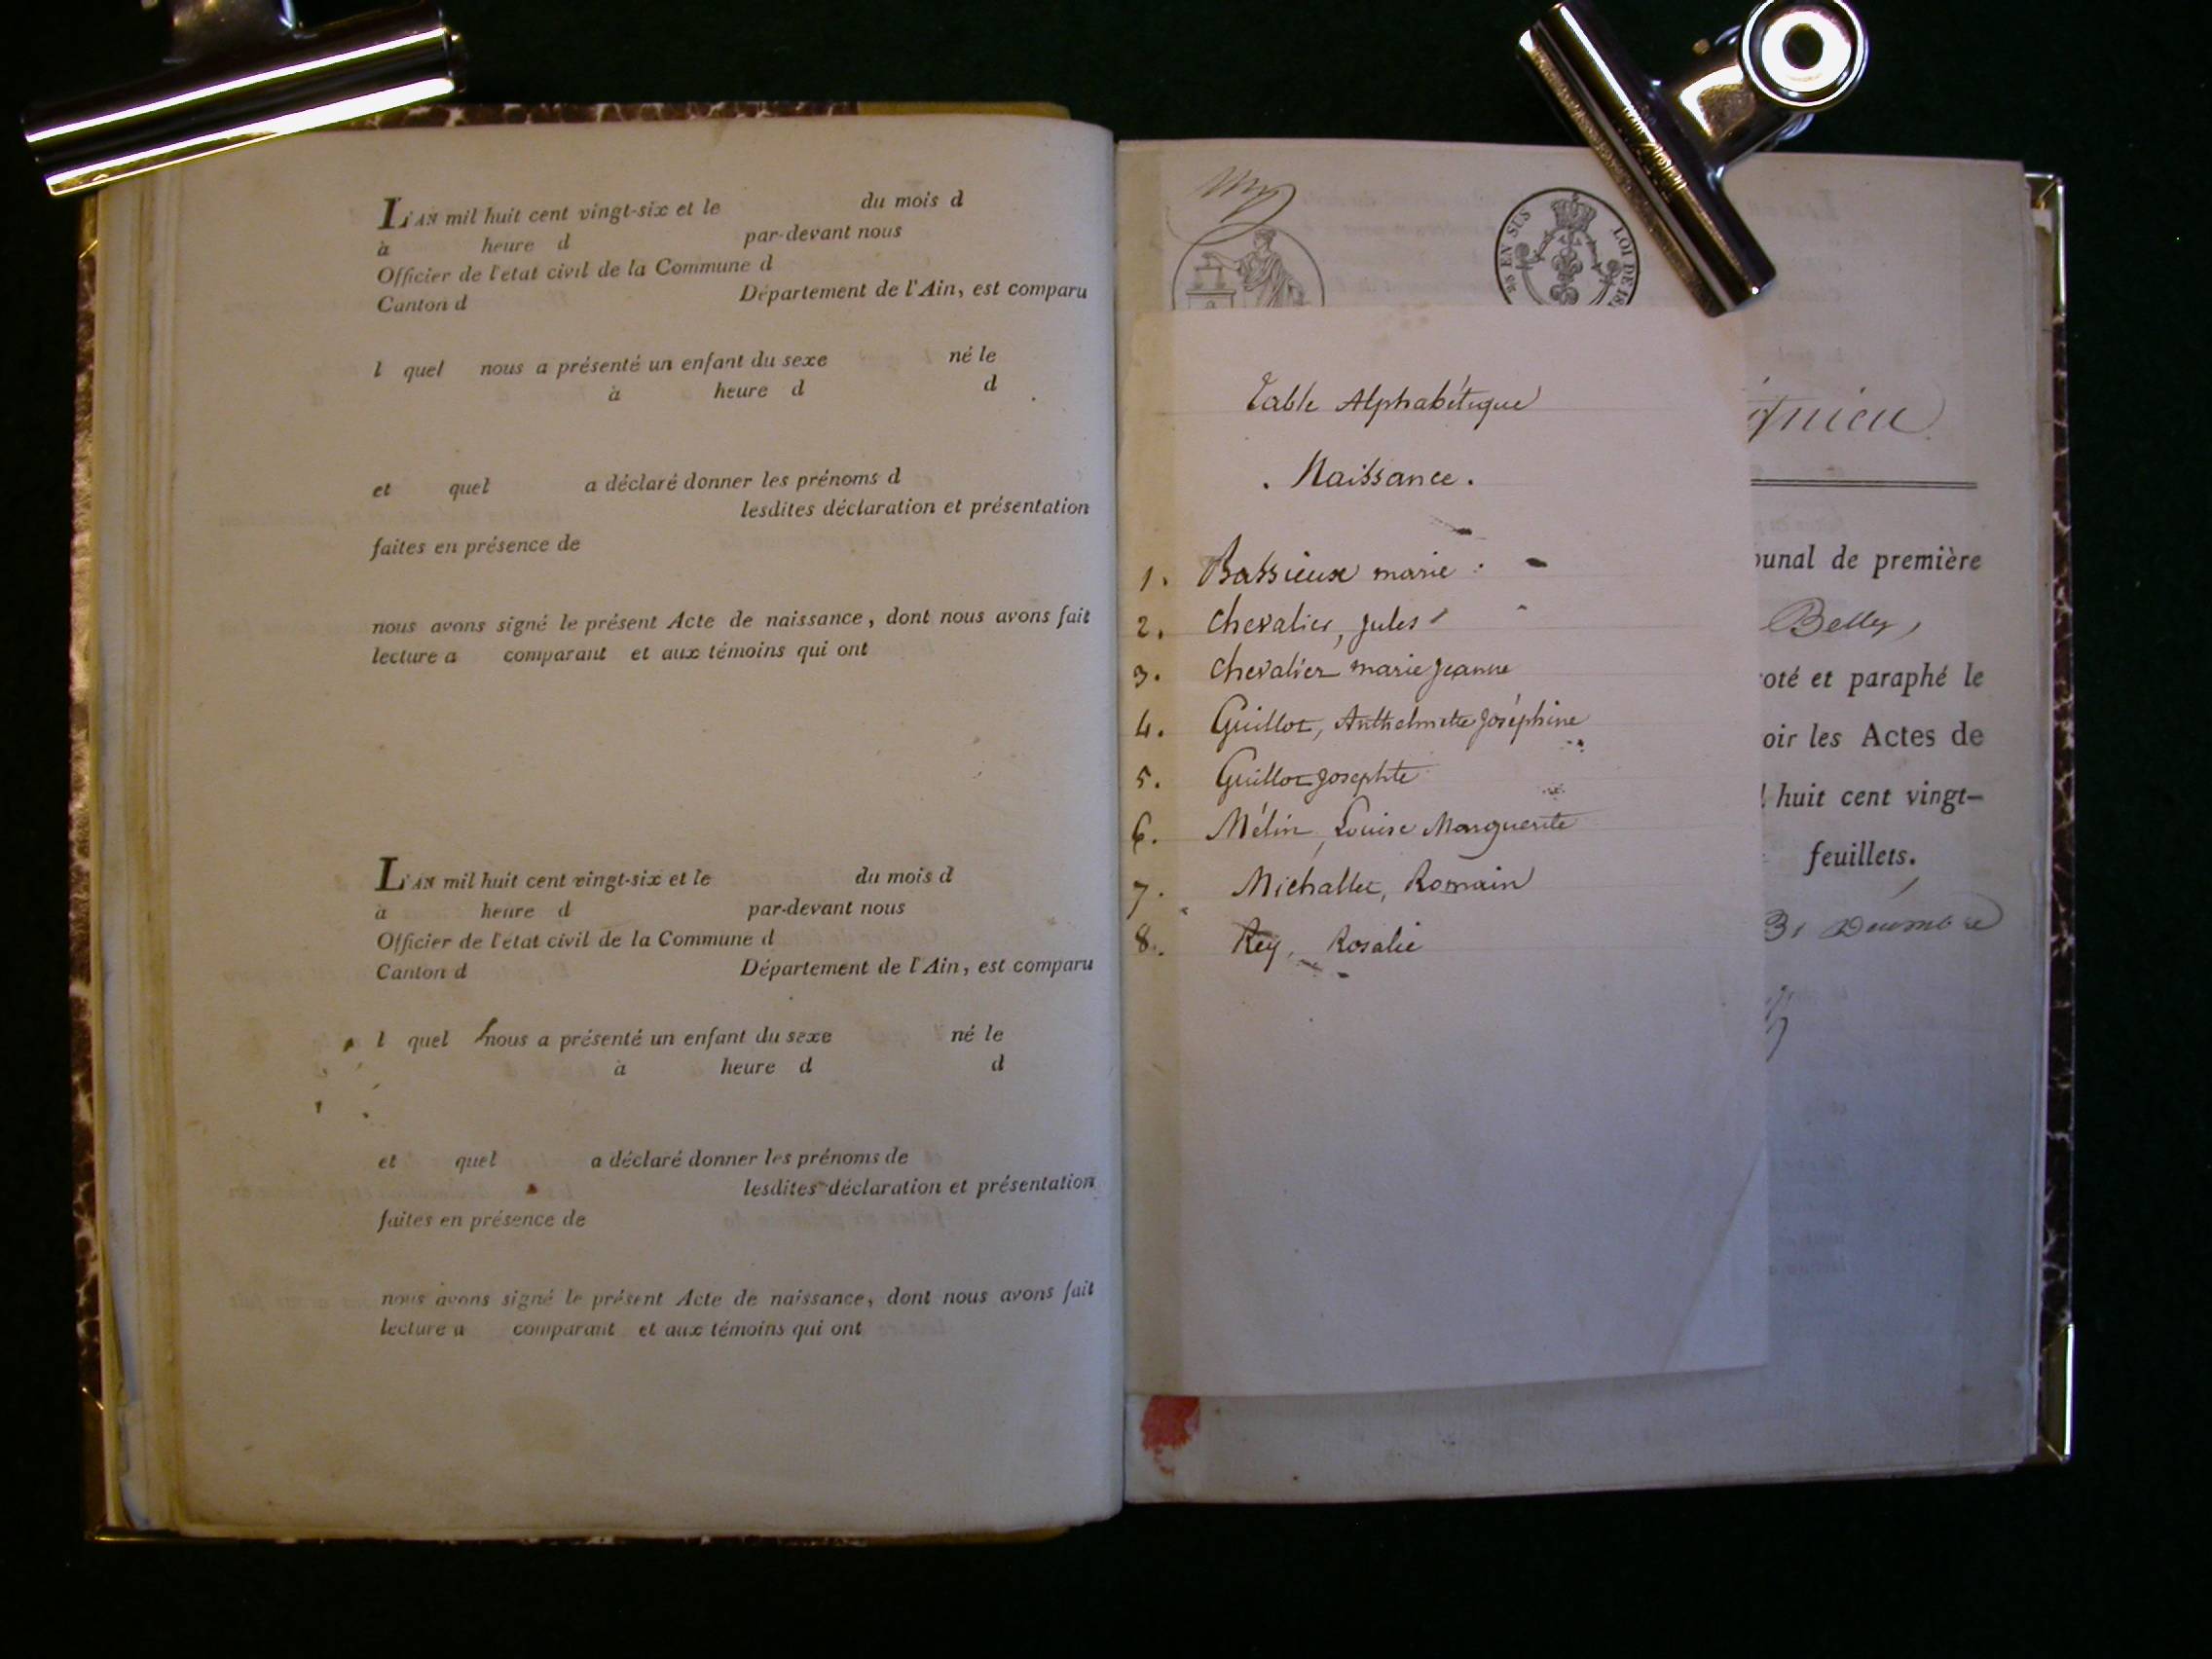 L'AN mil huit cent vingt-six et le du mois d
à heure d par-devant nous
Officier de l'état civil de la Commune d
Canton d Département de l'Ain, est comparu
l quel nous a présenté un enfant du sexe né le
à heure d d
et quel a déclaré donner les prénoms d
lesdites déclaration et présentation
faites en présence de
nous avons signé le présent Acte de naissance, dont nous avons fait
lecture a comparant et aux témoins qui ont
L'AN mil huit cent vingt-six et le du mois d
à heure d par-devant nous
Officier de l'état civil de la Commune d
Canton d Département de l'Ain, est comparu
l quel nous a présenté un enfant du sexe né le
à heure d d
et quel a déclaré donner les prénoms de
lesdites déclaration et présentation
faites en présence de
nous avons signé le présent Acte de naissance, dont nous avons fait
lecture a comparant et aux témoins qui ont
EN SUS LOI DE 18
Table Alphabétique
. Naissance .
1. Bassieux marie
2. Chevalier, Jules
3. Chevalier marie Jeanne
4. Guillot, Anthelmette Joséphine
5. Guillot Josephte
6. Mélin, Louise Marguerite
7. Michallet, Romain
8. Rey, Rosalie
gnieu
bunal de première
Belley,
coté et paraphé le
oir les Actes de
l huit cent vingt-
feuillets.
31 Décembre